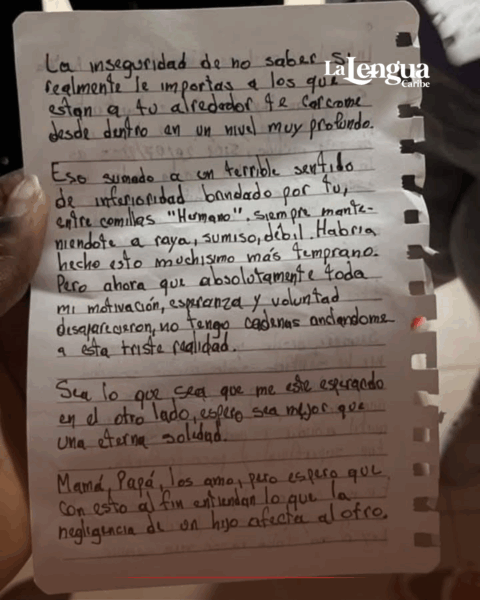 La inseguridad de no saber si
realmente le importas a los que
estan a tu alrededor te carcome
desde dentro en un nivel muy profundo.
Eso sumado a un terrible sentido
de inferioridad brindado por tu,
entre comillas "Humano". Siempre mante-
niendote a raya, sumiso, débil. Habria
hecho esto muchisimo más temprano.
Pero ahora que absolutamente toda
mi motivación, esperanza y voluntad
desaparecieron, no tengo cadenas anclandome
a esta triste realidad.
Sea lo que sea que me este esperando
en el otro lado, espero sea mejor que
una eterna soledad.
Mamá, Papá, los amo, pero espero que
con esto al fin entiendan lo que la
negligencia de un hijo afecta al otro.
La Lengua
Caribe